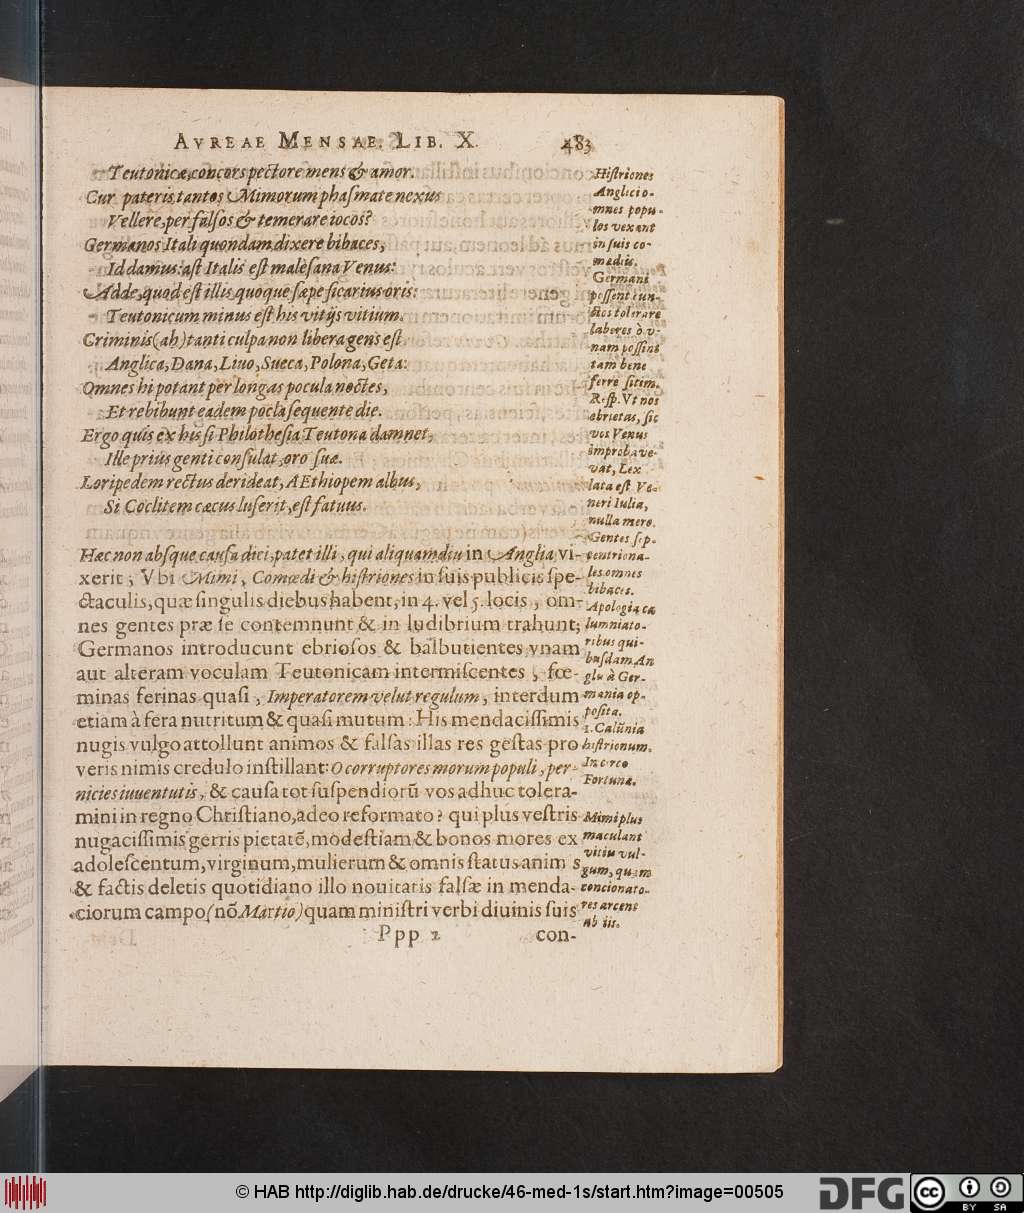 AVREAE MENSAE. LIB. X. 483
Teutonicæ, concors pectore mens & amor.
Cur pateris, tantos Mimorum phasmate nexus
Vellere, per falsos & temerare iocos?
Germanos Itali quondam dixere bibaces,
Id damus: ast Italis est malesana Venus:
Adde, quod est illis quoque sæpe sicarius oris:
Teutonicum minus est his vitijs vitium.
Criminis (ah) tanti culpa non libera gens est
Anglica, Dana, Liuo, Sueca, Polona, Geta:
Omnes hi potant per longas pocula noctes,
Et rebibunt eadem pocla sequente die.
Ergo quis ex his si Philothesia Teutona damnet,
Ille priùs genti consulat, oro suæ.
Loripedem rectus derideat, AEthiopem albus,
Si Coclitem cæcus luserit, est fatuus.
Hæc non absque causa dici, patet illi, qui aliquamdiu in Anglia vi-
xerit; Vbi Mimi, Comœdi & histriones in suis publicis spe-
ctaculis, quæ singulis diebus habent, in 4. vel 5. locis, om-
nes gentes præ se contemnunt & in ludibrium trahunt;
Germanos introducunt ebriosos & balbutientes vnam
aut alteram voculam Teutonicam intermiscentes, fœ-
minas ferinas quasi, Imperatorem velut regulum, interdum
etiam à fera nutritum & quasi mutum: His mendacissimis
nugis vulgo attollunt animos & falsas illas res gestas pro
veris nimis credulo instillant: O corruptores morum populi, per-
nicies iuuentutis, & causa tot suspendiorū vos adhuc tolera-
mini in regno Christiano, adeo reformato? qui plus vestris
nugacissimis gerris pietatē, modestiam & bonos mores ex
adolescentum, virginum, mulierum & omnis status anim s
& factis deletis quotidiano illo nouitatis falsæ in menda-
ciorum campo (nō Martio) quam ministri verbi diuinis suis
Ppp 2 con-
Histriones
Anglici o-
mnes popu-
los vexant
in suis co-
mœdiis.
Germani
possent cun-
ctos tolerare
labores ò v-
nam possint
tam bene
ferre sitim.
Resp. Vt nos
ebrietas, sic
vos Venus
improba ve-
xat, Lex
lata est Ve-
neri Iulia,
nulla mero.
Gentes sep-
tentriona-
les omnes
bibaces.
Apologia ca
lumniato-
ribus qui-
busdam An
gliæ à Ger-
mania op-
posita.
1. Calūnia
histrionum.
In circo
Fortunæ.
Mimi plus
maculant
vitiu vul-
gum, quam
concionato-
res arcent
ab iis.
© HAB http://diglib.hab.de/drucke/46-med-1s/start.htm?image=00505
DFG
cc
BY SA